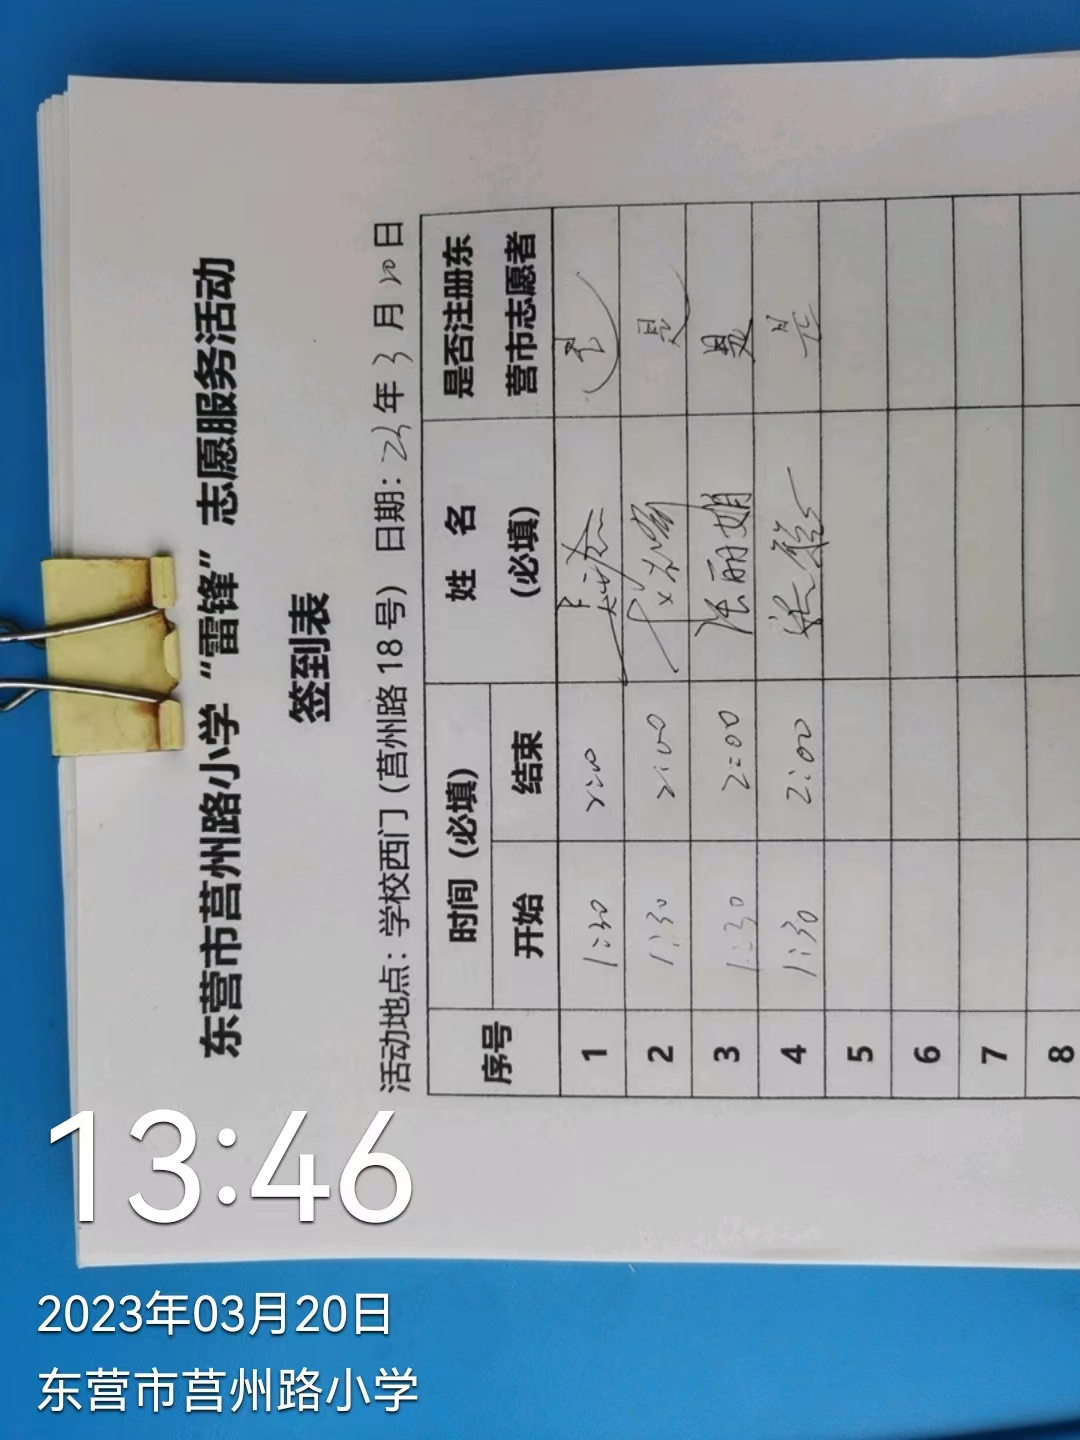 东营市莒州路小学“雷锋”志愿服务活动
签到表
活动地点：学校西门（莒州路18号） 日期：23年3月20日
序号 时间（必填） 姓 名（必填） 是否注册东营市志愿者
开始 结束
1 1:30 2:00 是
2 1:30 2:00 是
3 1:30 2:00 张丽娟 是
4 1:30 2:00 是
5
6
7
8
13:46
2023年03月20日
东营市莒州路小学